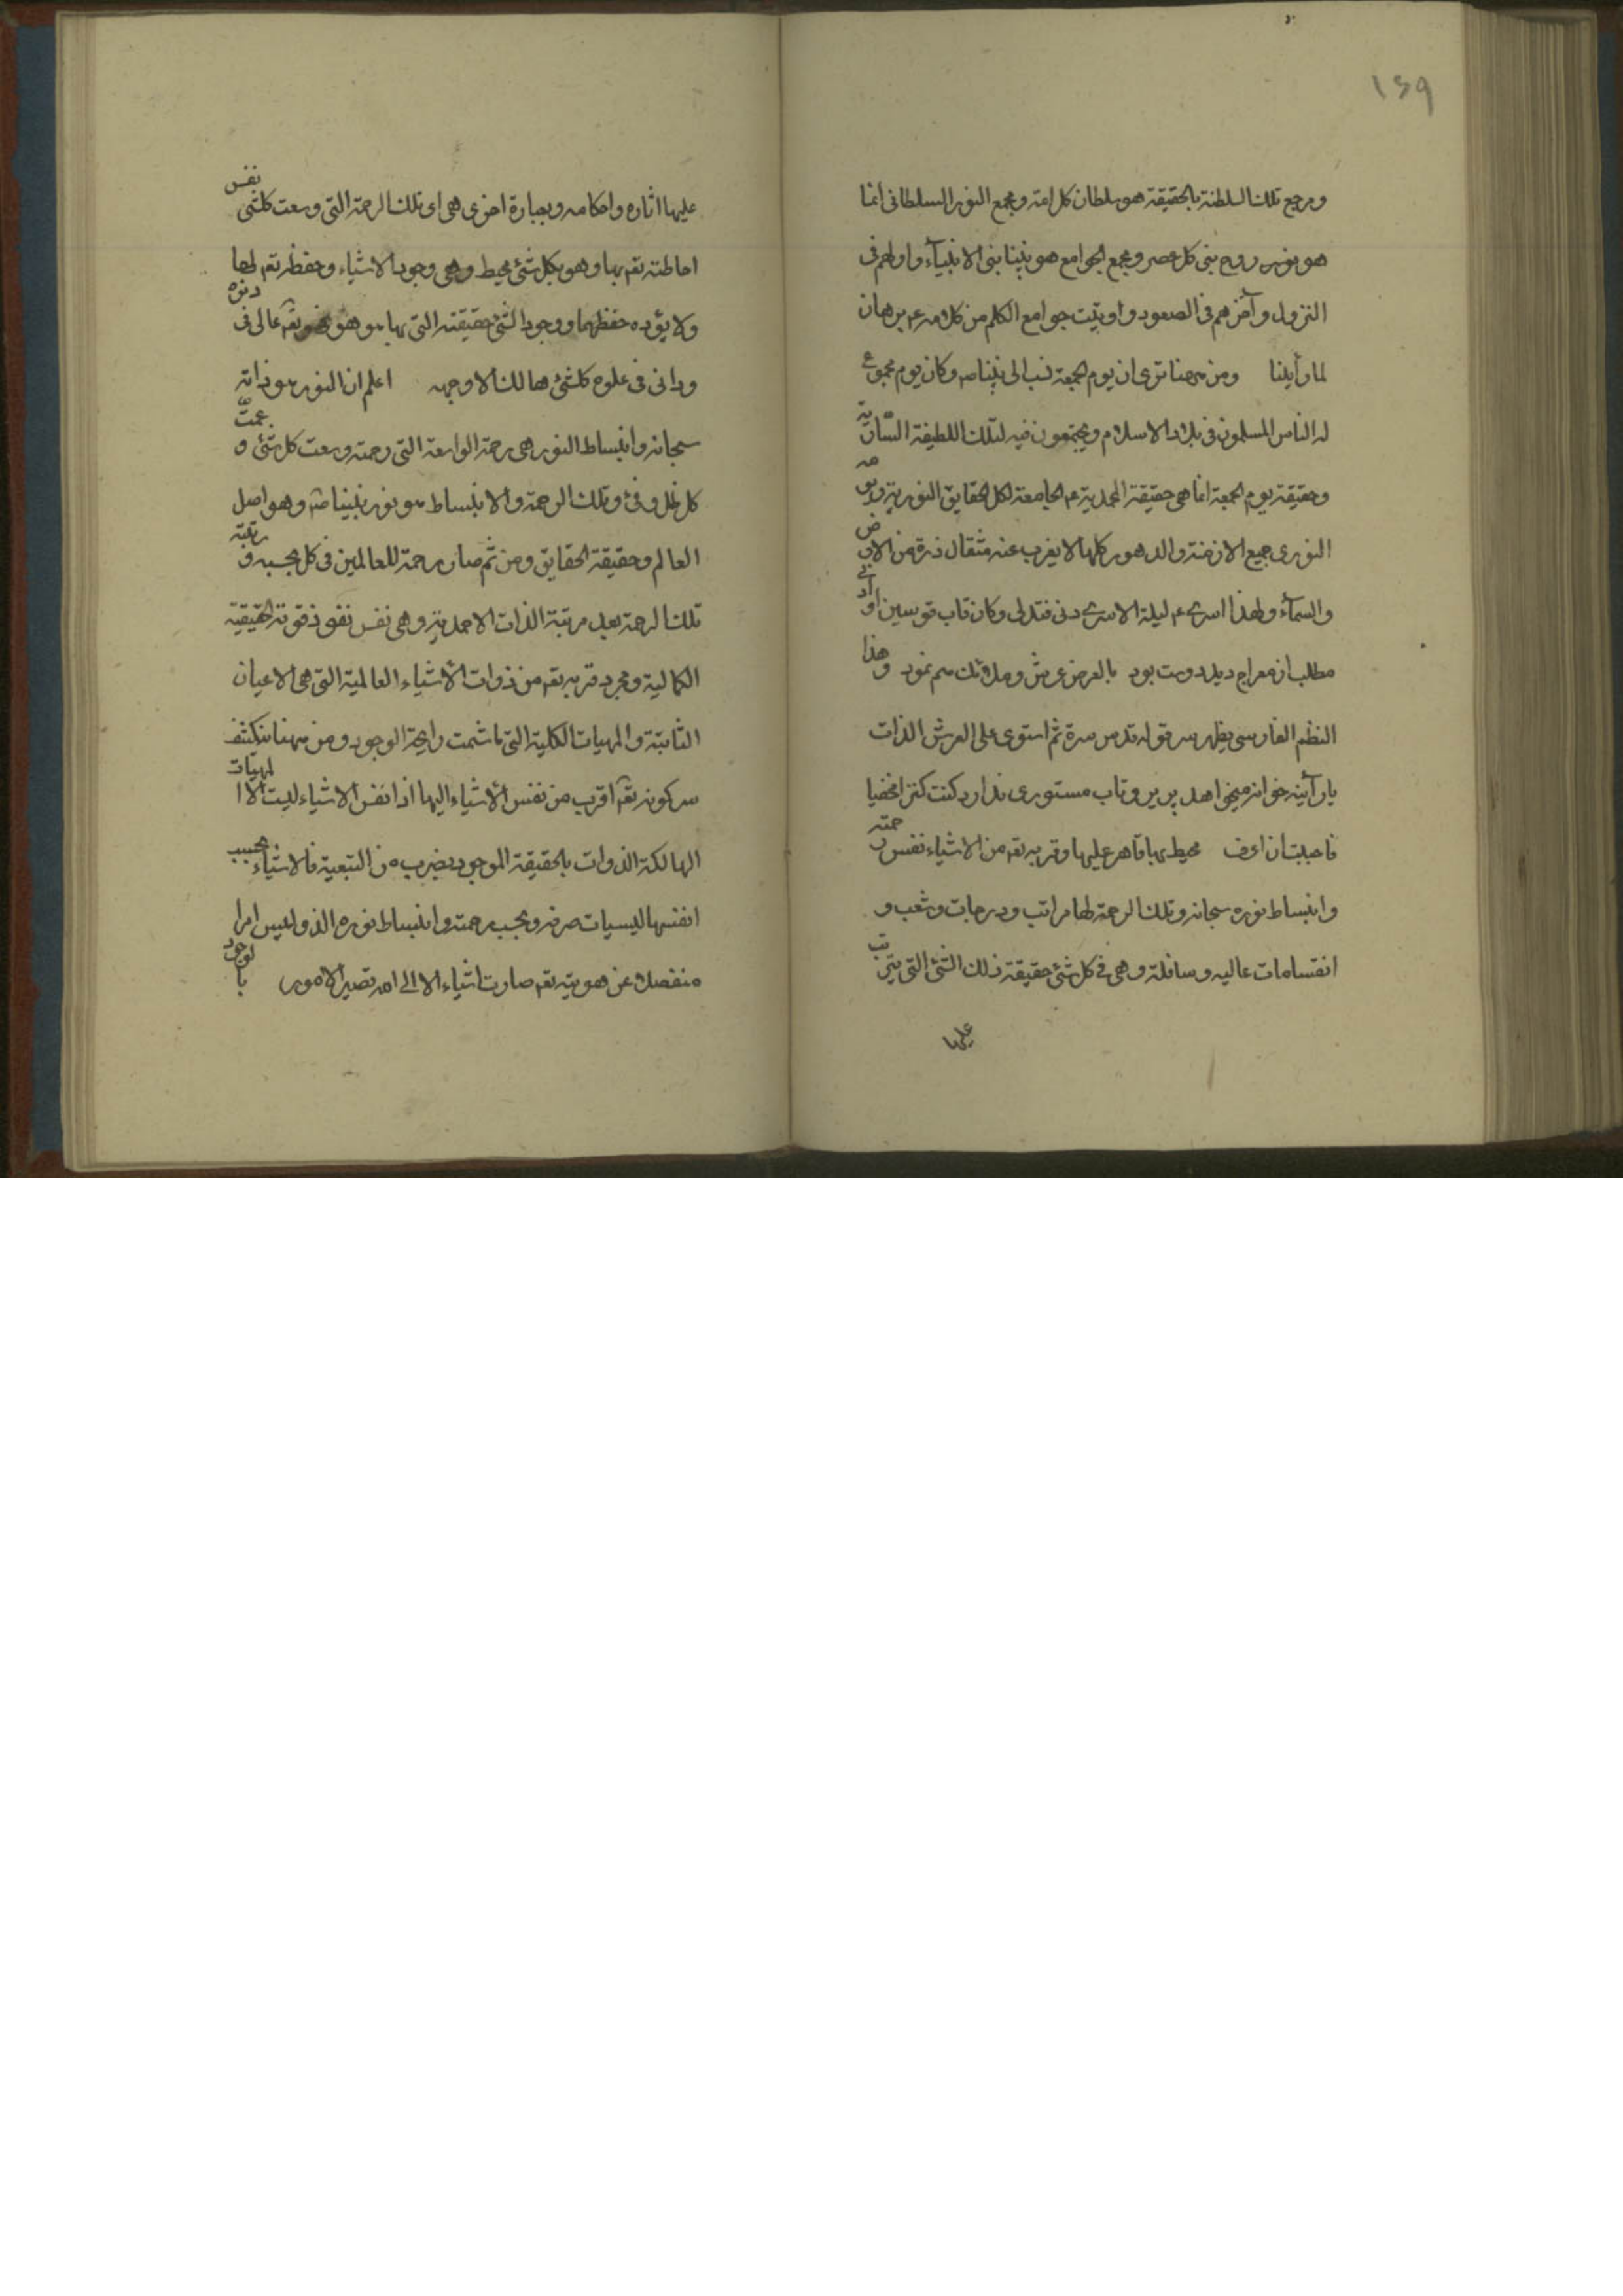 ١٤٩
ومرجع تلك السلطنة بالحقيقة هو سلطان كل امة ومجمع النور السلطانى انما
هو نور روح نبى كل عصر ومجمع الجوامع هو نبينا نبى الانبيآء واولهم فى
النزول وآخرهم فى الصعود واوتيت جوامع الكلم من كلامه ع م برهان
لما رأينا ومن ههنا ترى ان يوم الجمعة نسب الى نبينا ص وكان يوم مجموع
له الناس المسلمون فى بلاد الاسلام ويجتمعون فيه لتلك اللطيفة السّاريّة
وحقيقة يوم الجمعة انما هى حقيقة المحمدية ع م الجامعة لكل الحقايق النورية ويومه
النورى جميع الازمنة والدهور كلها لا يغرب عنه مثقال ذرة من الارض
والسمآء ولهذا اسرى ع م ليلة الاسرى دنى فتدلى وكان قاب قوسين او أدنى
مطلب از معراج ديدد دوست بود بالعرض عرش وملائك هم نمود وهذا
النظم الفارسى يظهر سر قوله قدس سره ثم استوى على العرش الذات
يار آئينه خوانر ميخواهد پرير وتاب مستورى ندارد كنت كنزا مخفيا
فاحببت ان اعرف محيط بها قاهر عليها وقربه تعم من الاشياء نفس رحمته
وانبساط نوره سبحانه وتلك الرحمة لها مراتب ودرجات وشعب و
انقسامات عاليه وسافلة وهى فى كل شئ حقيقة ذلك الشئ التى يترتب
عليها
عليها اثاره واحكامه وبعبارة اخرى هى اى تلك الرحمة التى وسعت كلشى نفس
احاطته تعم بها وهو بكل شئ محيط وهى وجود الاشياء وحفظه تعم لها
ولا يؤده حفظهما ووجود الشئ حقيقته التى بها هو هو فهو تعم عالى فى دنوه
ودانى فى علوه كلشئ هالك الا وجهه اعلم ان النور هو ذاته
سبحانه وانبساط النور هى رحمة الواسعة التى رحمته وسعت كل شئ و عمّت
كل ظل وفئ وتلك الرحمة والانبساط هو نور نبينا ص وهو اصل
العالم وحقيقة الحقايق ومن ثم صار رحمة للعالمين فى كل بحسبه و مرتبته
تلك الرحمة بعد مرتبة الذات الاحدية وهى نفس نفوذ قوته الحقيقية
الكمالية ومجرد قربه تعم من ذوات الاشياء العالمية التى هى الاعيان
الثابتة والمهيات الكلية التى ما شمت رايحة الوجود ومن ههنا ينكشف
سر كونه تعم اقرب من نفس الاشياء اليها اذا نفس الاشياء ليست الا المهيّات
الهالكة الذوات بالحقيقة الموجود بضرب من التبعية فالاشياء بحسب
انفسها ليسيات صرفه وبحسب رحمته وانبساط نوره الذى ليس امرا
منفصلا عن هويته تعم صارت اشياء الا الى الله تصير الامور بالوجود